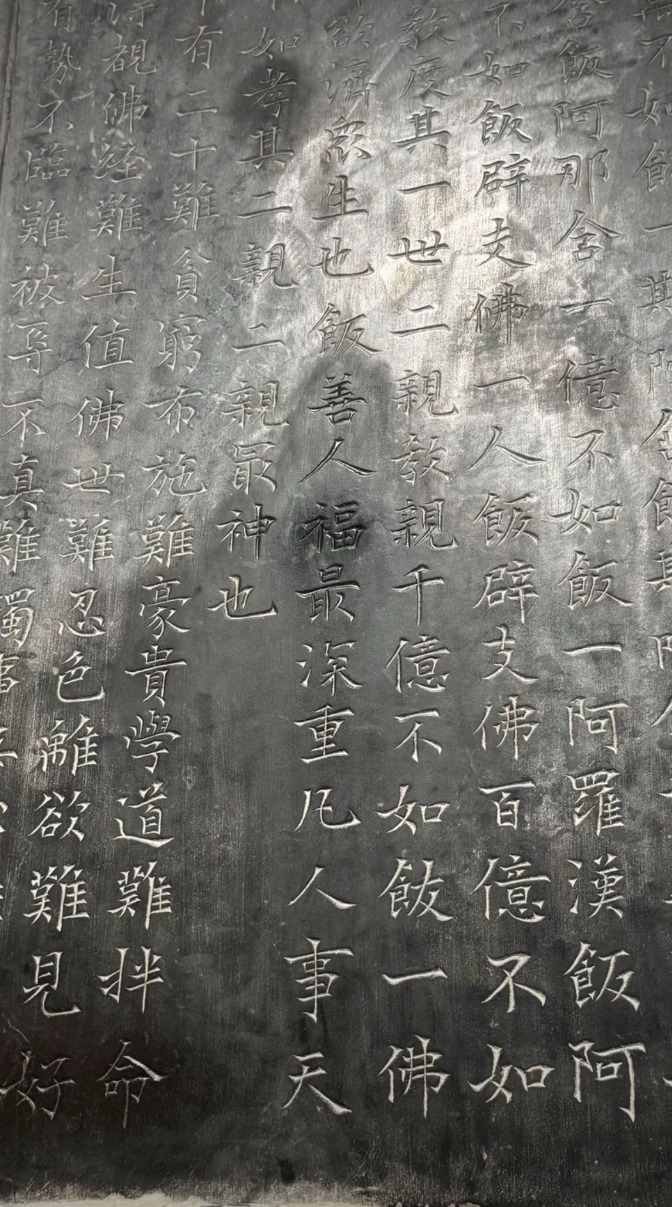 不如飯一
含飯阿那含一億不如飯一阿羅漢飯阿
不如飯辟支佛一人飯辟支佛百億不如
教度其一世二親教親千億不如飯一佛
欲濟眾生也飯善人福最深重凡人事天
如孝其二親二親冣神也
有二十難貧窮布施難豪貴學道難拌命
得覩佛經難生值佛世難忍色離欲難見好
有勢不臨難被辱不真難觸事